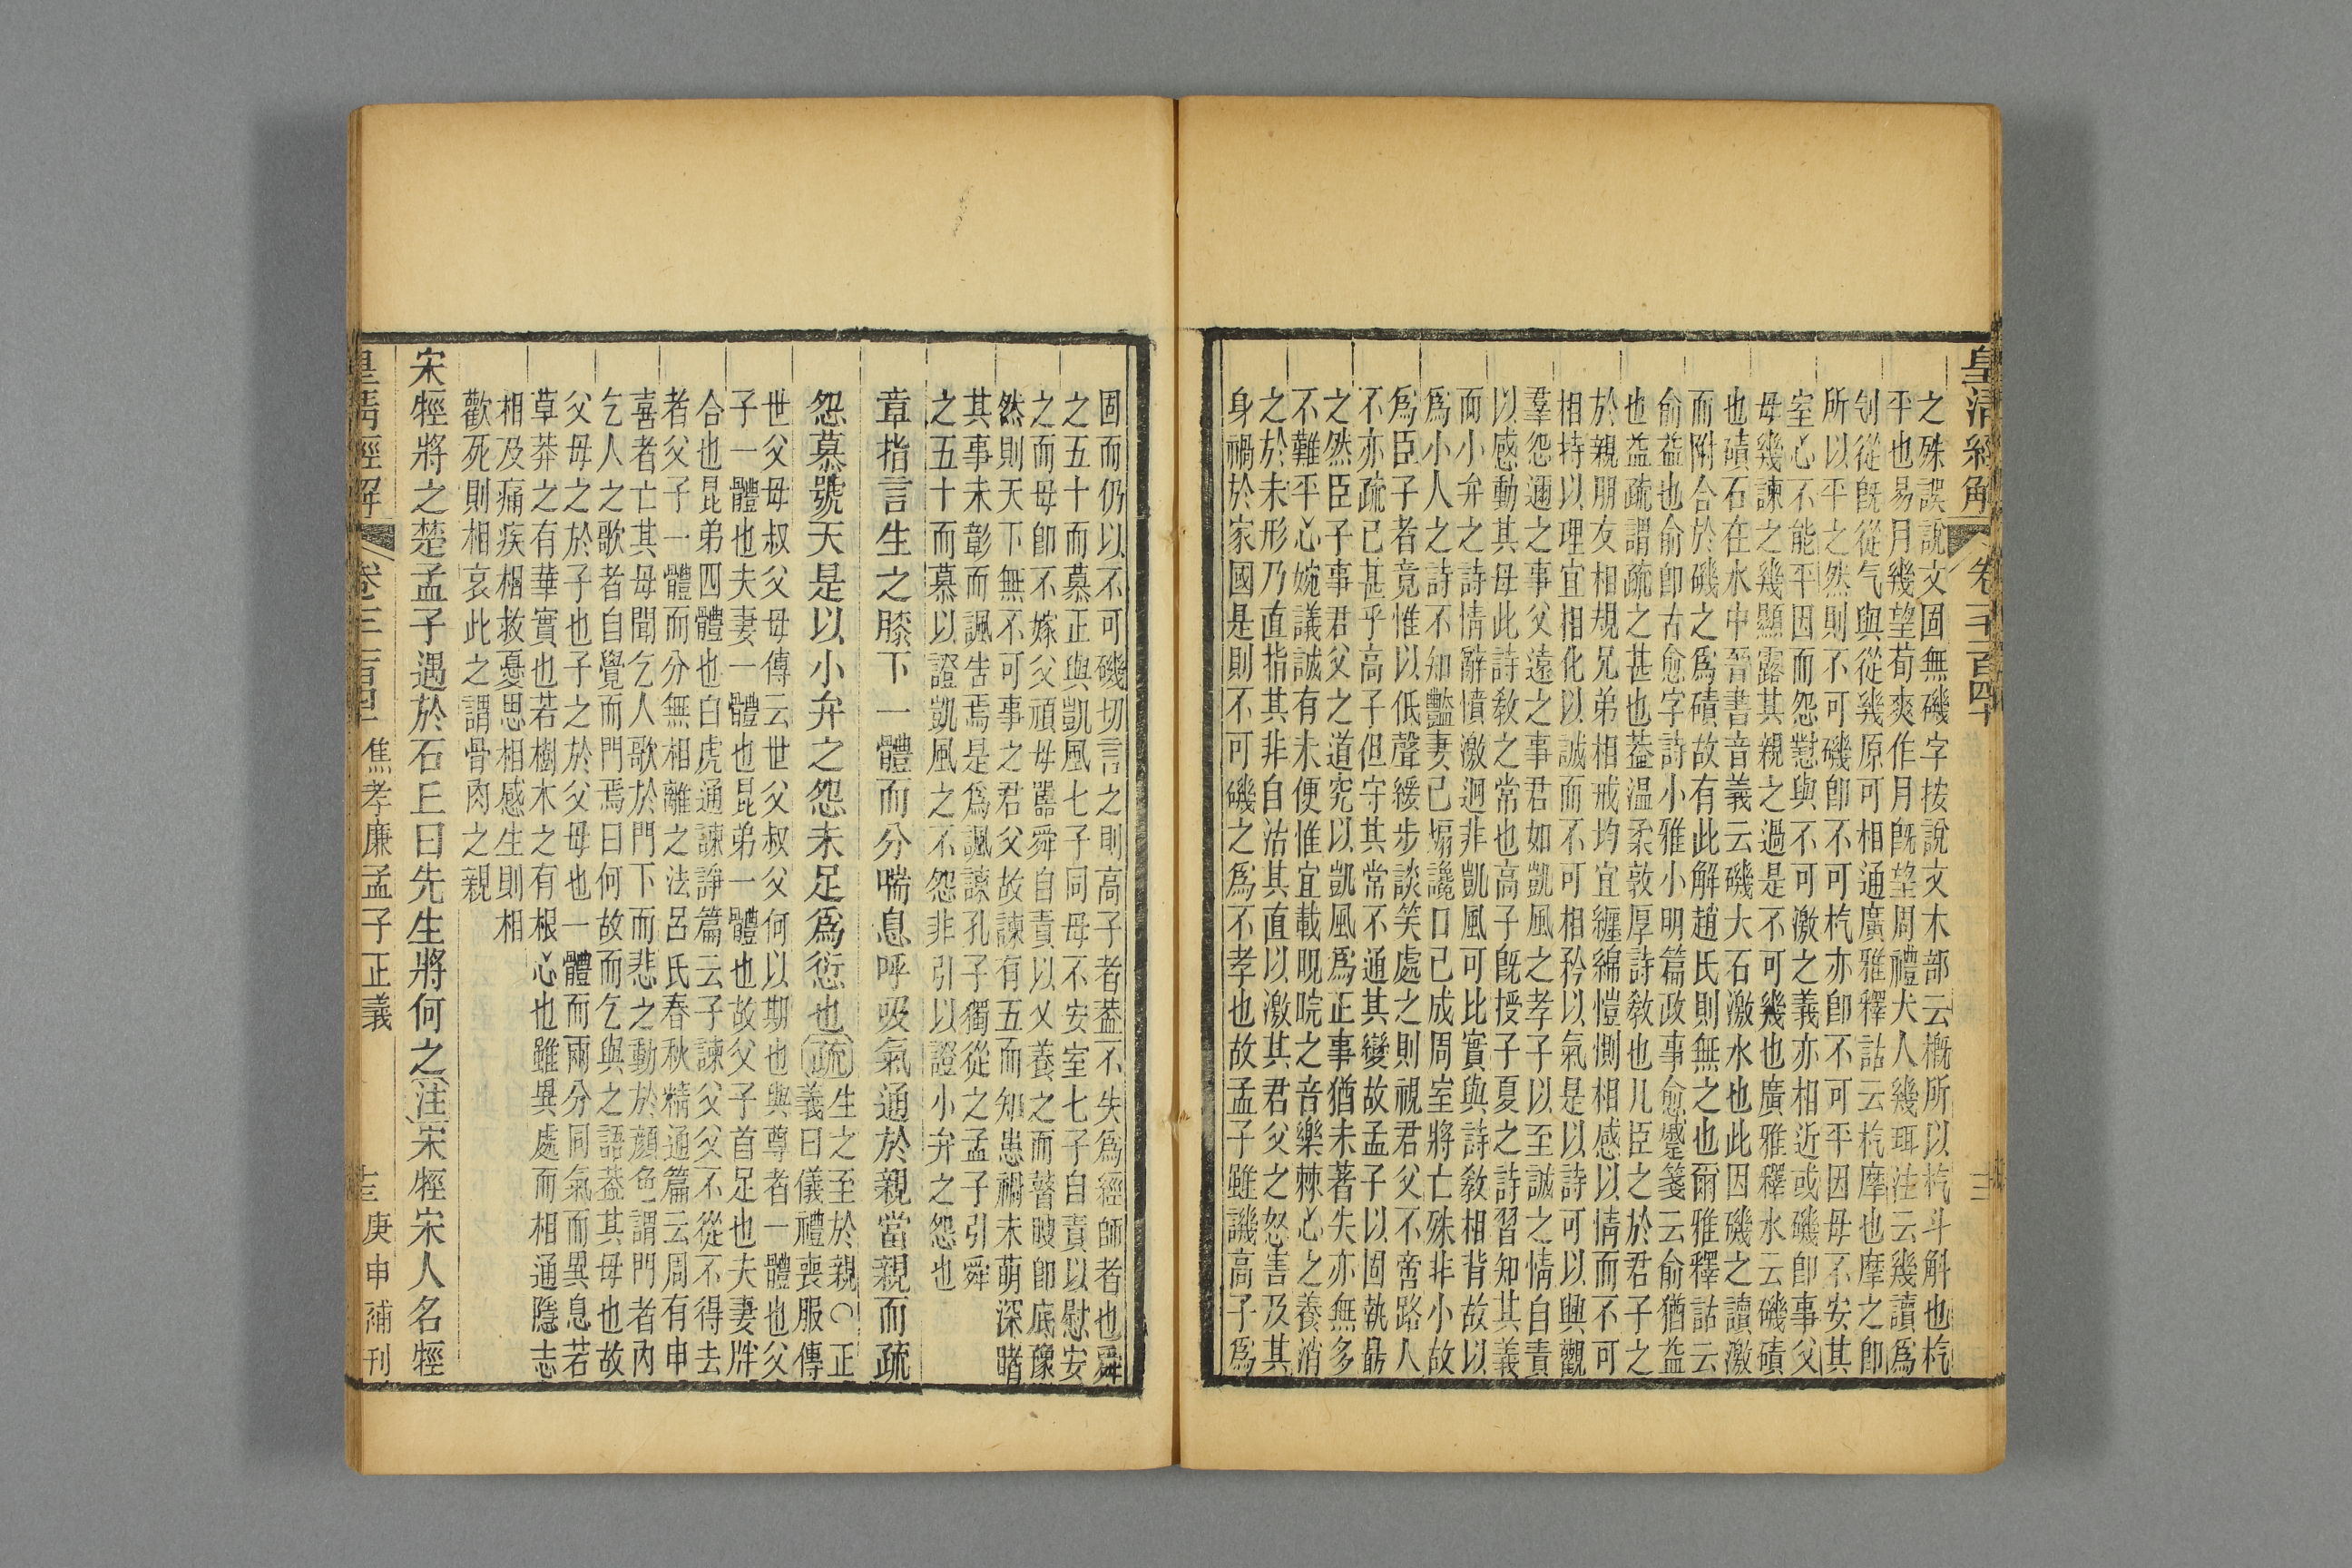 皇清經解 卷一千一百四十
之殊誤說文固無磯字按說文木部云概所以杚斗斛也杚
平也易月幾望荀爽作月既望周禮犬人幾珥注云幾讀爲
刉從旣從气與從幾原可相通廣雅釋詁云杚摩也摩之即
所以平之然則不可磯卽不可杚亦卽不可平因母不安其
室心不能平因而怨懟與不可激之義亦相近或磯卽事父
母幾諫之幾顯露其親之過是不可幾也廣雅釋水云磯磧
也磧石在水中晉書音義云磯大石激水也此因磯之讀激
而附合於磯之爲磧故有此解趙氏則無之也爾雅釋詁云
俞益也俞卽古愈字詩小雅小明篇政事愈蹙箋云俞猶益
也益疏謂疏之甚也葢温柔敦厚詩敎也凡臣之於君子之
於親朋友相規兄弟相戒均宜纏綿愷惻相感以情而不可
相持以理宜相化以誠而不可相矜以氣是以詩可以興觀
羣怨邇之事父遠之事君如凱風之孝子以至誠之情自責
以感動其母此詩敎之常也高子旣授子夏之詩習知其義
而小弁之詩情辭憤激迥非凱風可比實與詩敎相背故以
爲小人之詩不知豔妻已煽讒口已成周室將亡殊非小故
爲臣子者竟惟以低聲緩步談笑處之則視君父不啻路人
不亦疏已甚乎高子但守其常不通其變故孟子以固執爲
之然臣子事君父之道究以凱風爲正事猶未著失亦無多
不難平心婉議誠有未便惟宜載睍睆之音樂棘心之養消
之於未形乃直指其非自沽其直以激其君父之怒害及其
身禍於家國是則不可磯之爲不孝也故孟子雖譏高子爲
固而仍以不可磯切言之則高子者葢不失爲經師者也舜
之五十而慕正與凱風七子同母不安室七子自責以慰安
之而母卽不嫁父頑母嚚舜自責以乂養之而瞽瞍卽底豫
然則天下無不可事之君父故諫有五而知患禍未萌深睹
其事未彰而諷吿焉是爲諷諫孔子獨從之孟子引舜
之五十而慕以證凱風之不怨非引以證小弁之怨也
章指言生之膝下一體而分喘息呼吸氣通於親當親而疏
怨慕號天是以小弁之怨未足爲愆也疏生之至於親○正
義曰儀禮喪服傳
世父母叔父母傳云世父叔父何以期也與尊者一體也父
子一體也夫妻一體也昆弟一體也故父子首足也夫妻牉
合也昆弟四體也白虎通諫諍篇云子諫父父不從不得去
者父子一體而分無相離之法呂氏春秋精通篇云周有申
喜者亡其母聞乞人歌於門下而悲之動於顏色謂門者內
乞人之歌者自覺而門焉曰何故而乞與之語葢其母也故
父母之於子也子之於父母也一體而兩分同氣而異息若
草莽之有華實也若樹木之有根心也雖異處而相通隱志
相及痛疾相救憂思相感生則相
歡死則相哀此之謂骨肉之親
宋牼將之楚孟子遇於石丘曰先生將何之注宋牼宋人名牼
皇清經解 卷一千一百四十 焦孝廉孟子正義 庚申補刊